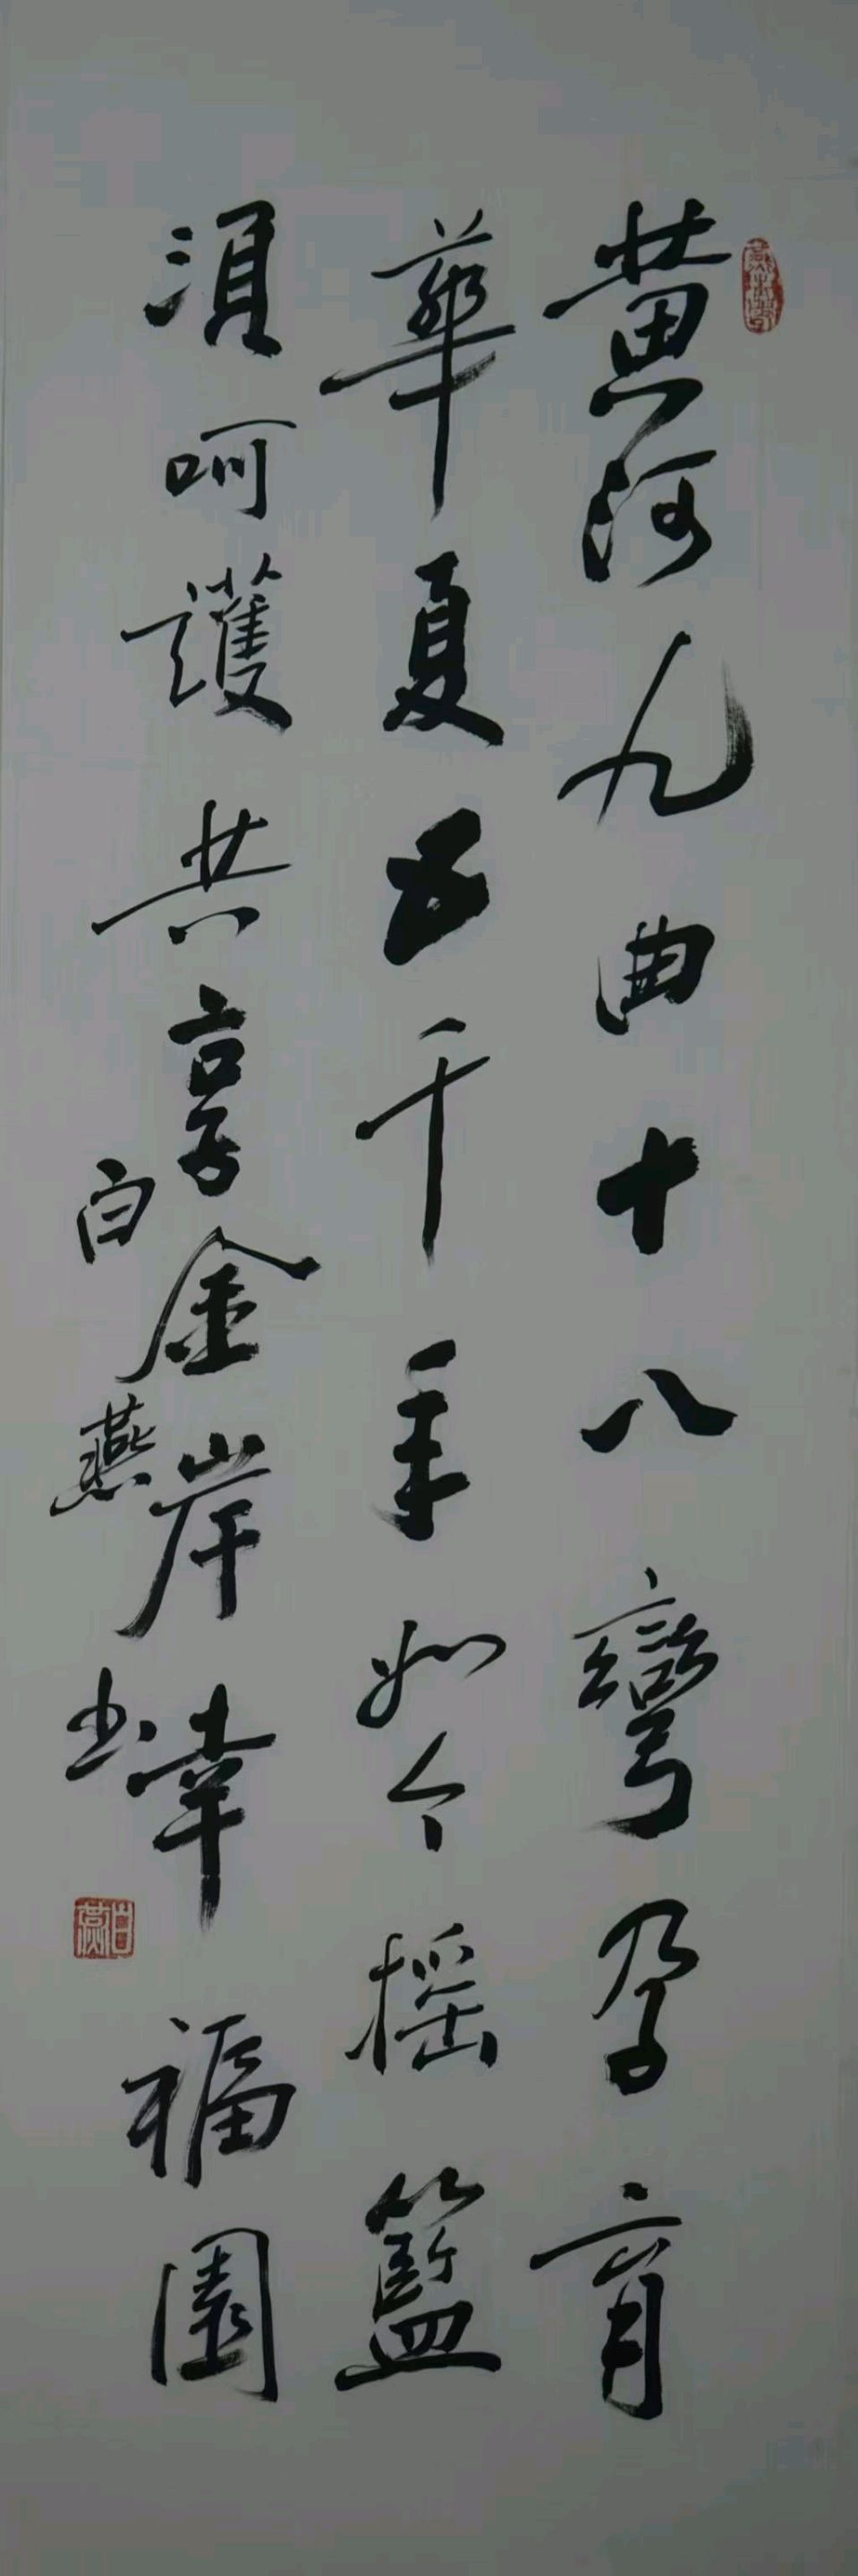 黄河九曲十八彎孕育
華夏五千年如今摇籃
須呵護共享金岸幸福園
白燕书
白燕